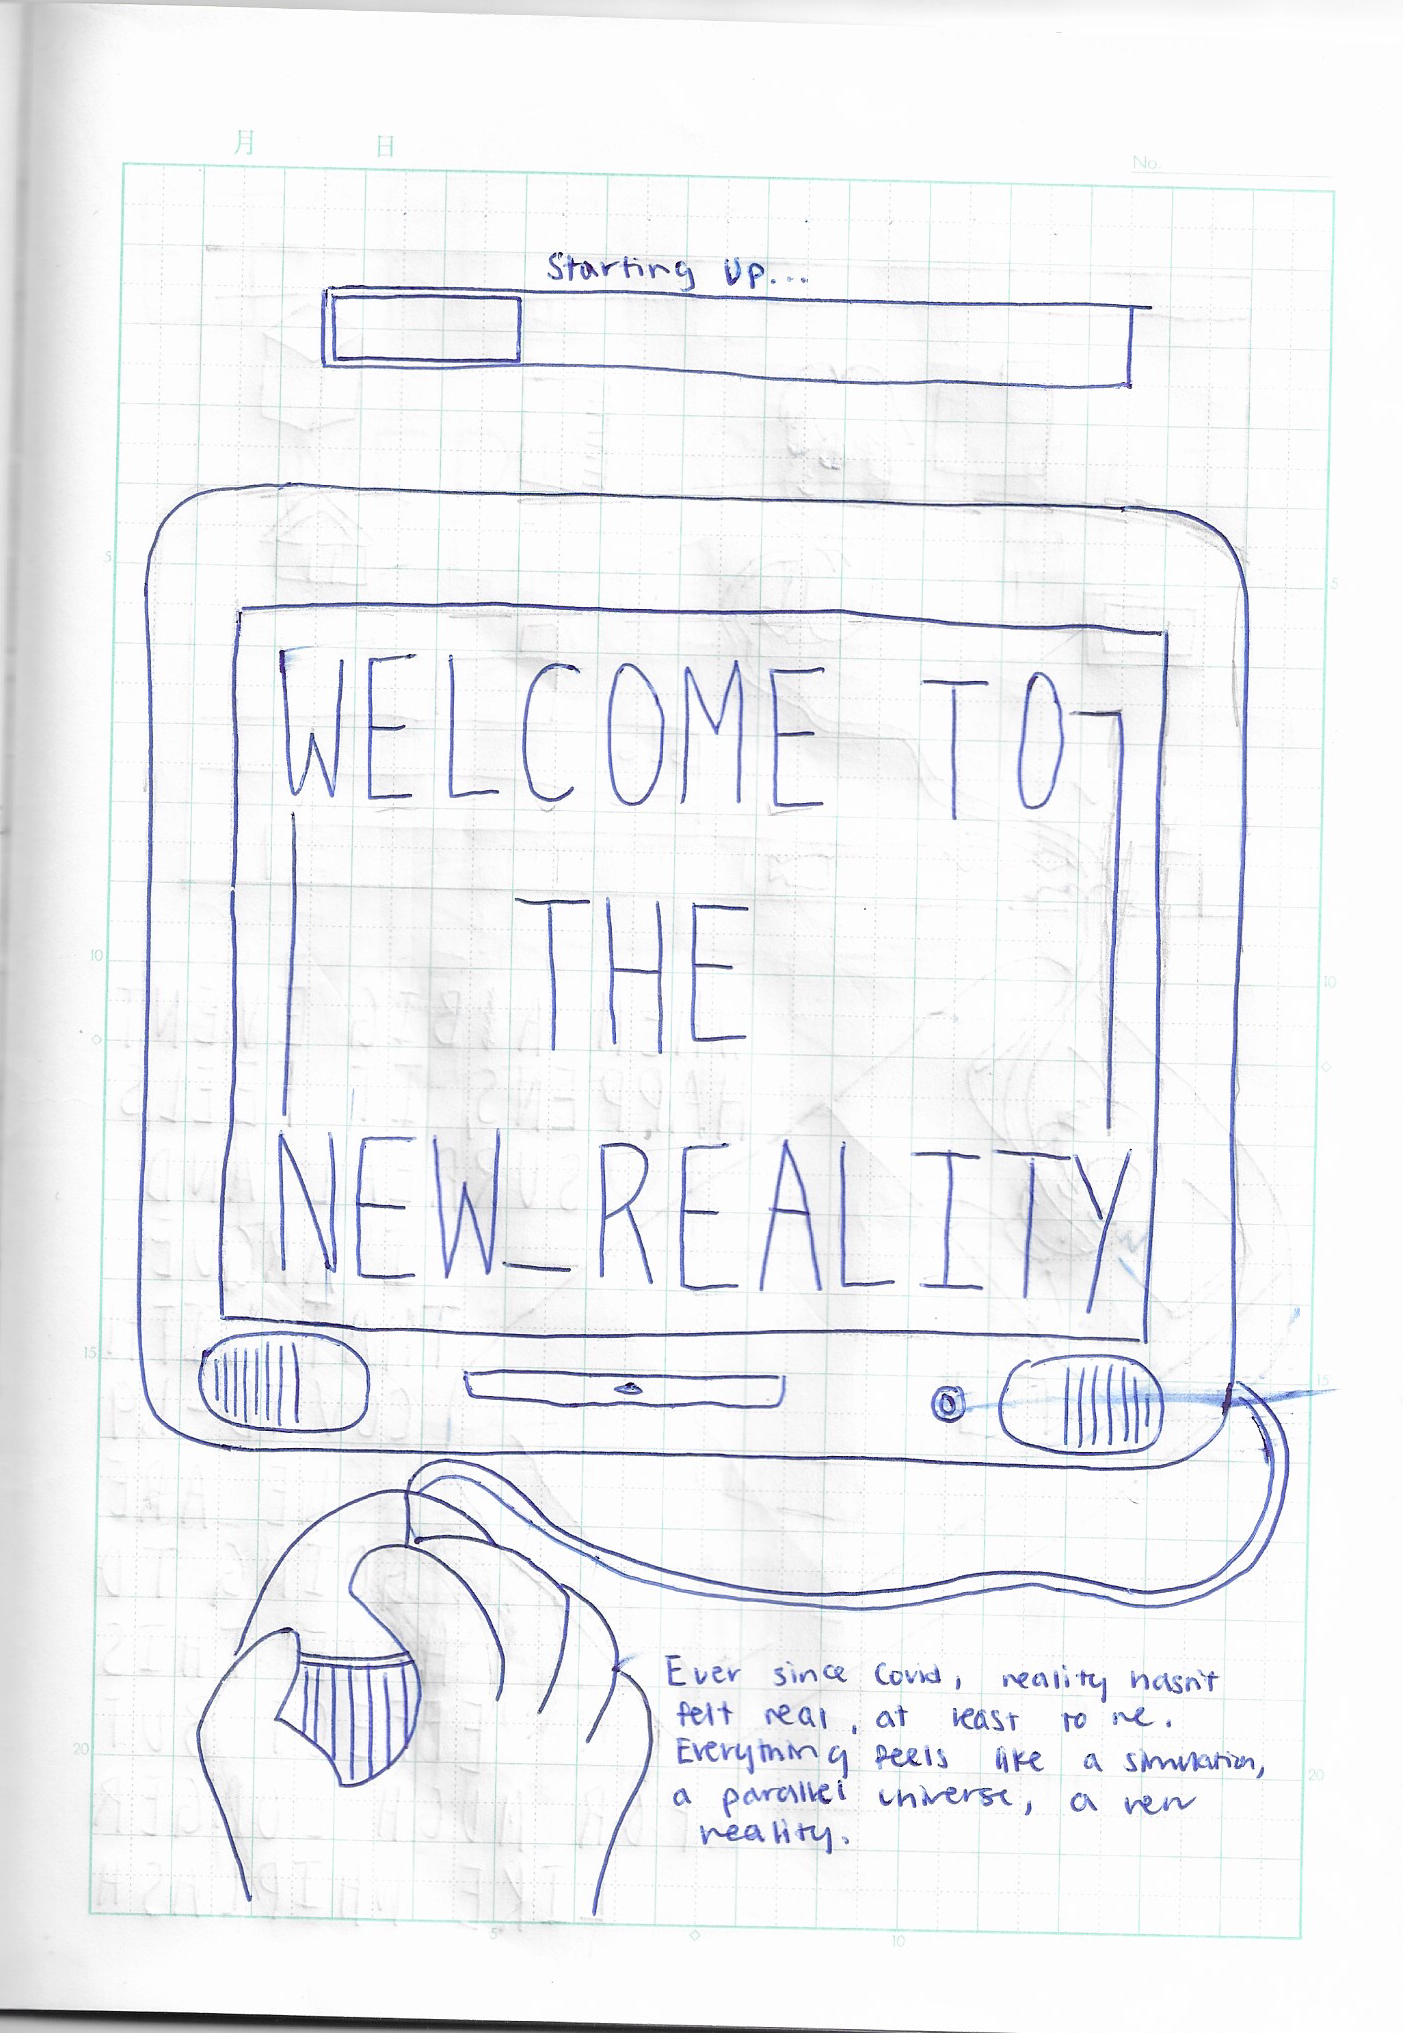 月 日
No.
Starting Up...
WELCOME TO
THE
NEW_REALITY
Ever since Covid, reality hasn't
felt real, at least to me.
Everything feels like a simulation,
a parallel universe, a new
reality.
5
5
10
10
15
15
20
20
5
10